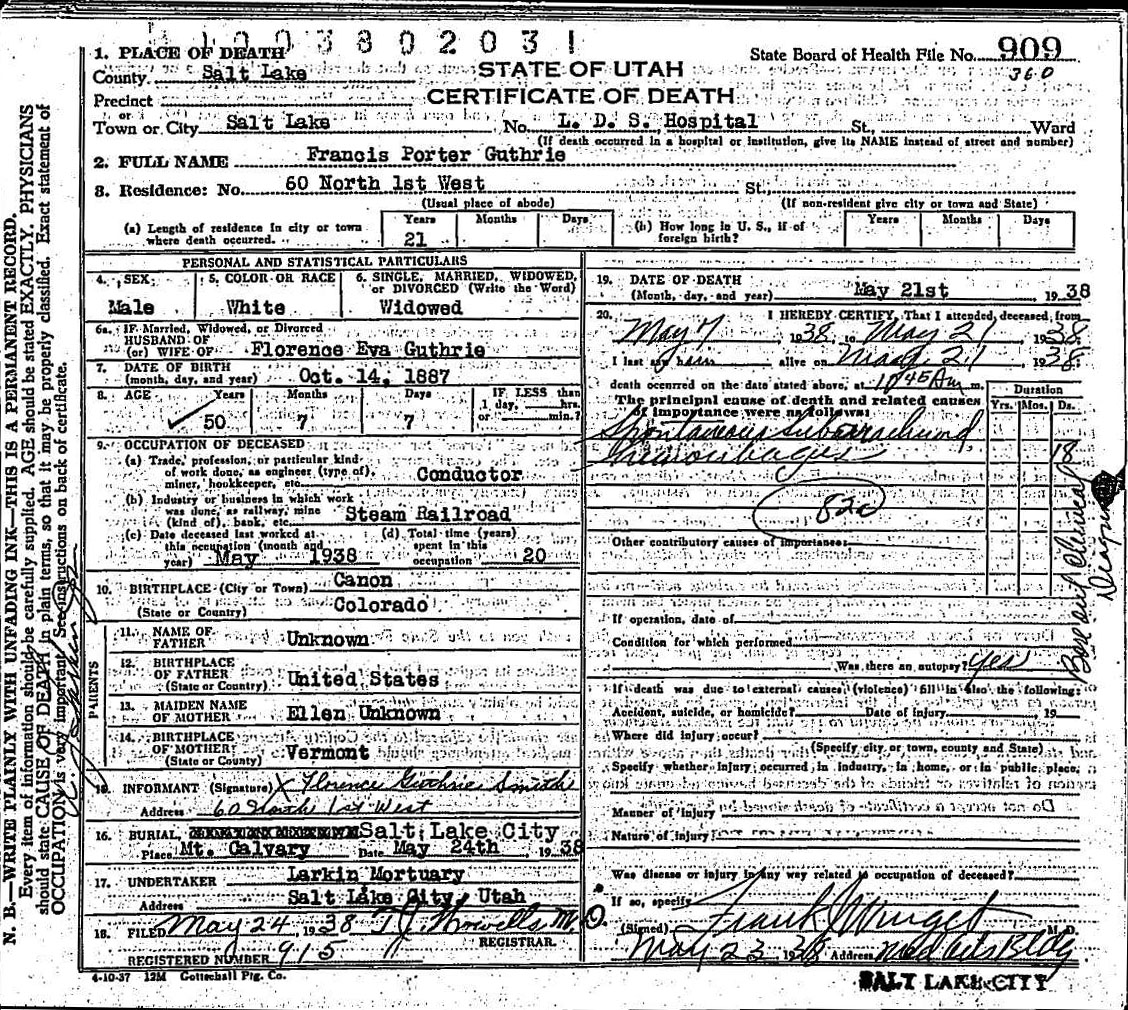 1 0 0 3 8 0 2 0 3 1
1. PLACE OF DEATH
County. Salt Lake
Precinct
or
Town or City Salt Lake
State Board of Health File No. 909
360
STATE OF UTAH
CERTIFICATE OF DEATH
No. L. D. S. Hospital St., Ward
(If death occurred in a hospital or institution, give its NAME instead of street and number)
2. FULL NAME Francis Porter Guthrie
3. Residence: No. 60 North 1st West St.
(Usual place of abode) (If non-resident give city or town and State)
(a) Length of residence in city or town where death occurred. Years 21 Months Days
(b) How long in U. S., if of foreign birth? Years Months Days
PERSONAL AND STATISTICAL PARTICULARS
4. SEX Male
5. COLOR OR RACE White
6. SINGLE, MARRIED, WIDOWED, or DIVORCED (Write the Word) Widowed
6a. IF Married, Widowed, or Divorced
HUSBAND OF
(or) WIFE OF Florence Eva Guthrie
7. DATE OF BIRTH
(month, day, and year) Oct. 14, 1887
8. AGE Years 50 Months 7 Days 7 IF LESS than 1 day, hrs. or min.?
9. OCCUPATION OF DECEASED
(a) Trade, profession, or particular kind of work done, as engineer (type of), miner, bookkeeper, etc. Conductor
(b) Industry or business in which work was done, as railway, mine (kind of), bank, etc. Steam Railroad
(c) Date deceased last worked at this occupation (month and year) May 1938
(d) Total time (years) spent in this occupation 20
10. BIRTHPLACE (City or Town) Canon
(State or Country) Colorado
PARENTS
11. NAME OF FATHER Unknown
12. BIRTHPLACE OF FATHER (State or Country) United States
13. MAIDEN NAME OF MOTHER Ellen Unknown
14. BIRTHPLACE OF MOTHER (State or County) Vermont
15. INFORMANT (Signature) X Florence Guthrie Smith
Address 60 North 1st West
16. BURIAL, Salt Lake City
Place Mt. Calvary Date May 24th, 1938
17. UNDERTAKER Larkin Mortuary
Address Salt Lake City, Utah
18. FILED May 24, 1938 T. J. Howells M.D.
REGISTRAR.
REGISTERED NUMBER 915
4-10-37 12M Gottschall Ptg. Co.
19. DATE OF DEATH
(Month, day, and year) May 21st 1938
20. I HEREBY CERTIFY, That I attended, deceased from
May 7, 1938, to May 21 1938
I last saw him alive on May 21 1938
death occurred on the date stated above, at 10 45 Am m.
The principal cause of death and related causes of importance were as follows:
Duration
Yrs. Mos. Ds.
Spontaneous Subarachnoid
hemorrhages 18
82a
Other contributory causes of importance
If operation, date of
Condition for which performed
Was there an autopsy? yes
If death was due to external causes (violence) fill in also the following:
Accident, suicide, or homicide? Date of injury 19
Where did injury occur?
(Specify city or town, county and State)
Specify whether injury occurred in industry, in home, or in public place,
Manner of injury
Nature of injury
Was disease or injury in any way related to occupation of deceased?
If so, specify
(Signed) Frank J Winget M.D.
May 23 1938 Address Med Arts Bldg
SALT LAKE CITY
Clinical
Diagnosis
N. B.—WRITE PLAINLY WITH UNFADING INK—THIS IS A PERMANENT RECORD.
Every item of information should be carefully supplied. AGE should be stated EXACTLY. PHYSICIANS
should state CAUSE OF DEATH in plain terms, so that it may be properly classified. Exact statement of
OCCUPATION is very important. See instructions on back of certificate.